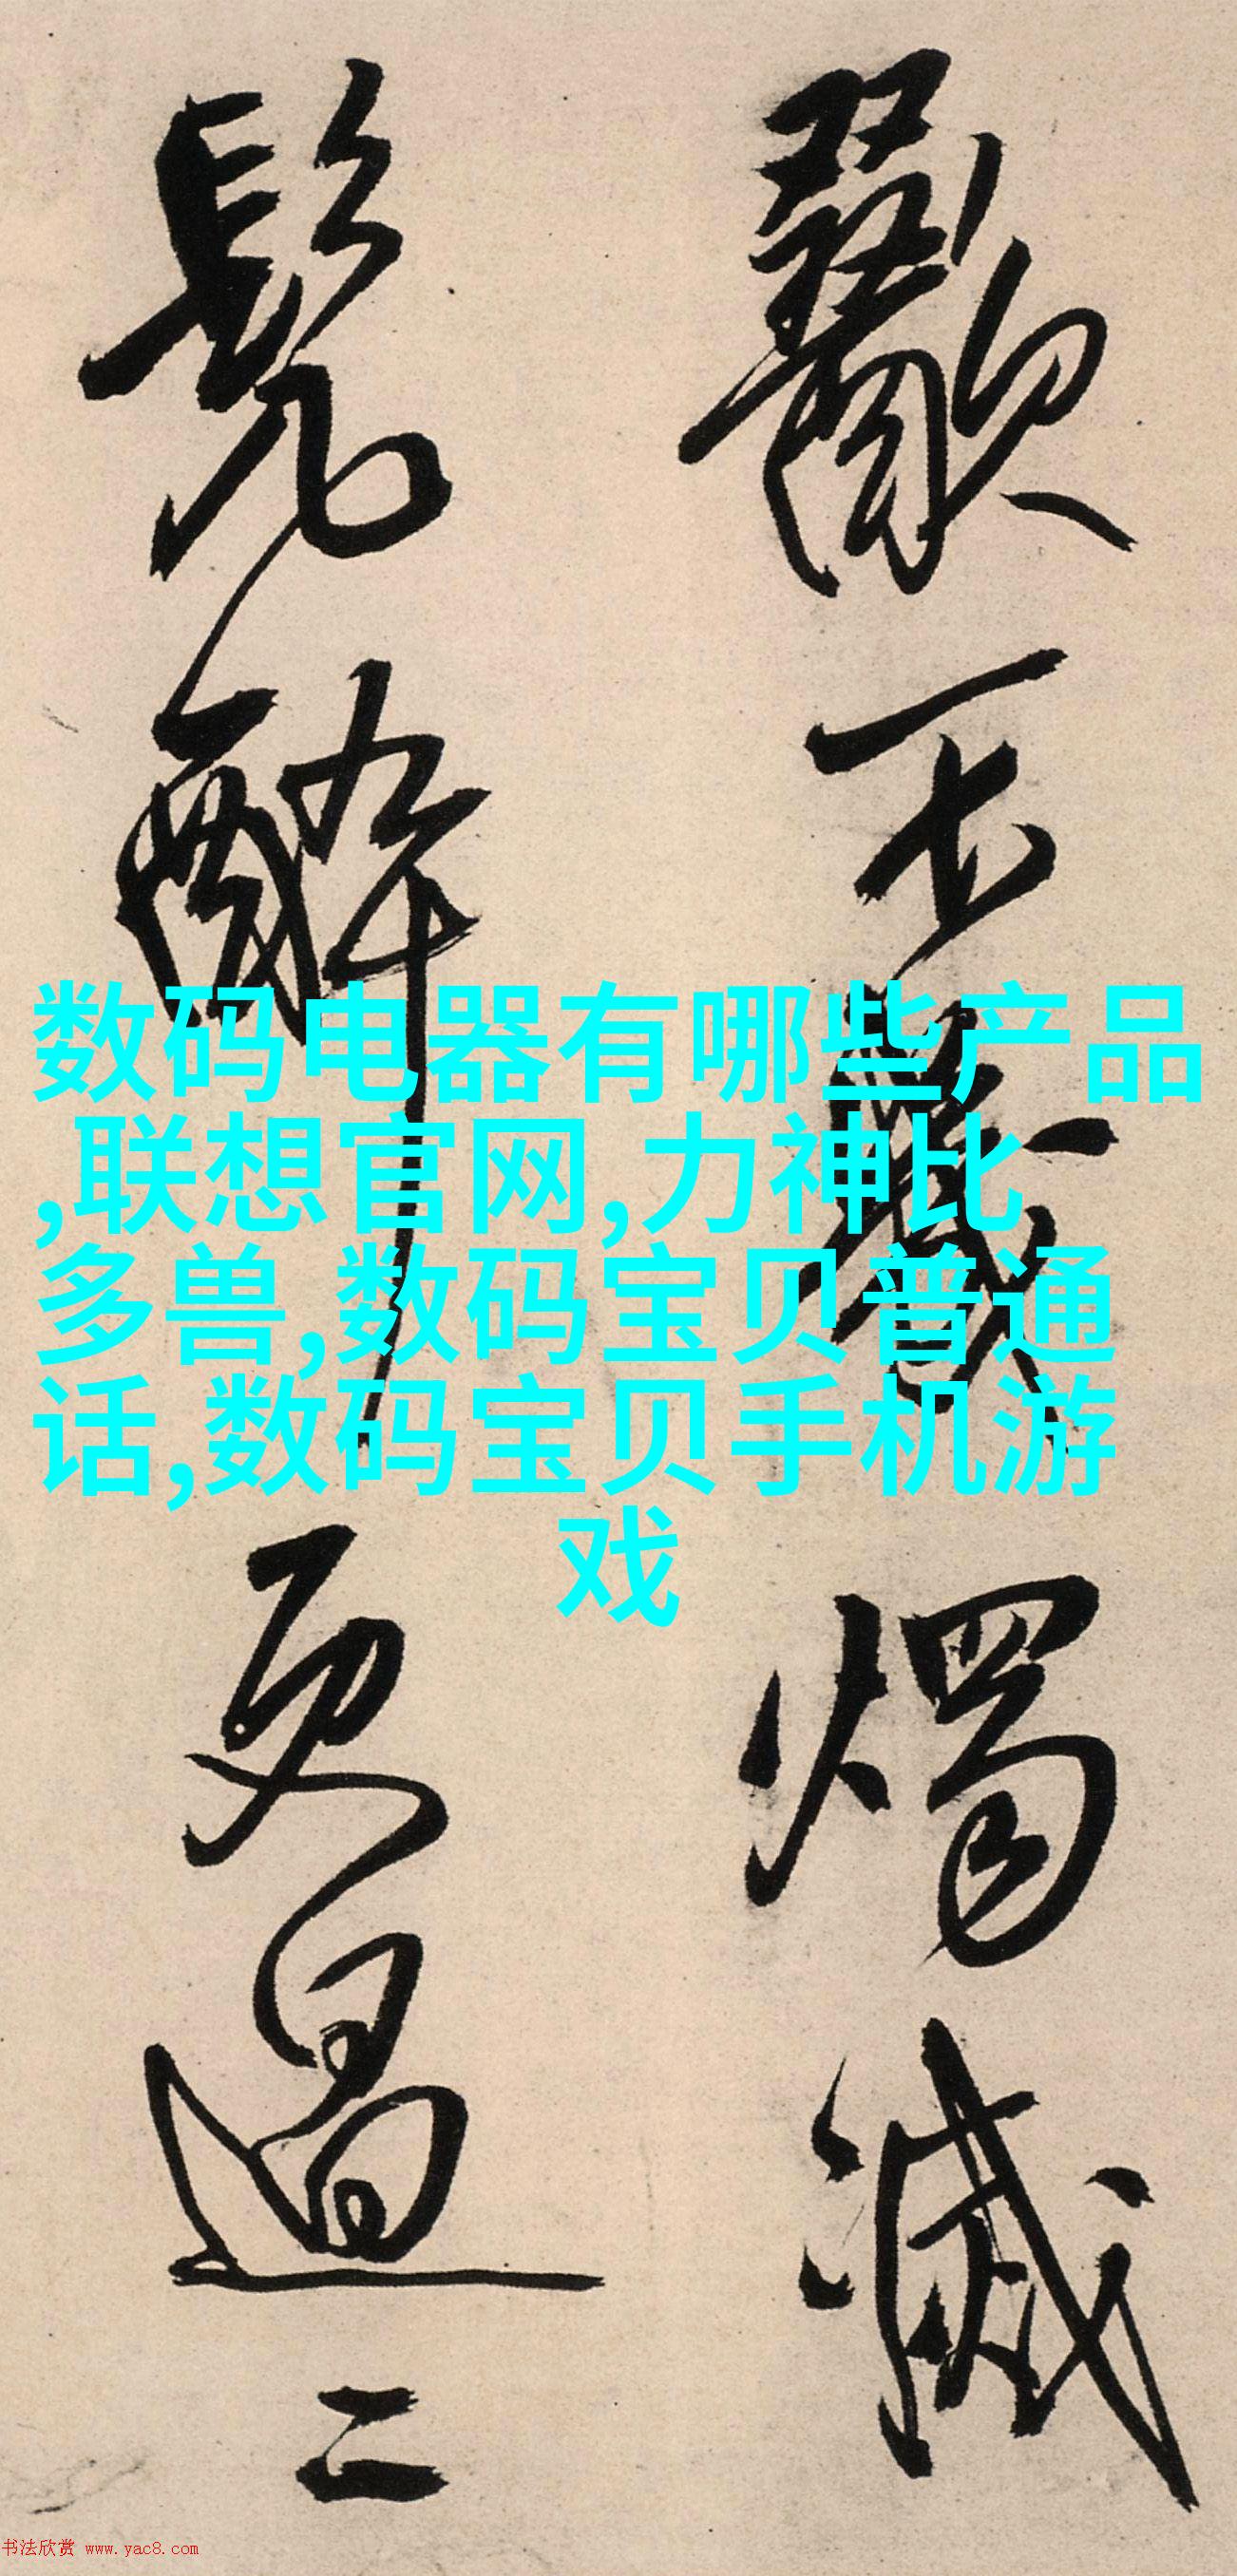 数码电器有哪些产品
,联想官网,力神比
多兽,数码宝贝普通
话,数码宝贝手机游
戏
烛灭
鬓醉
更过二
书法欣赏 www.yac8.com